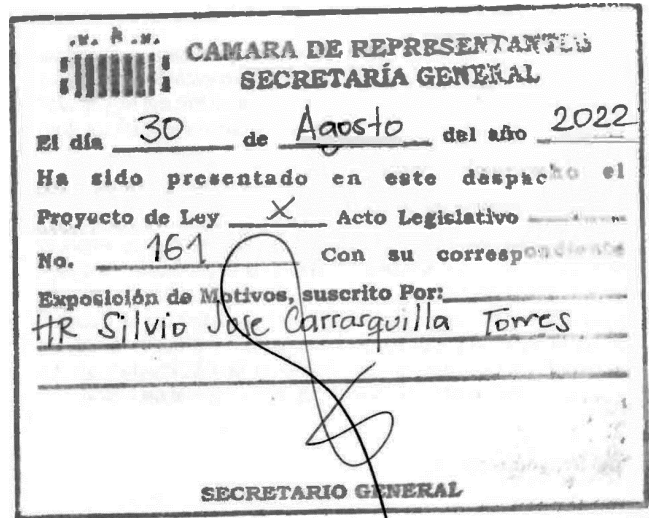 CAMARA DE REPRESENTANTES
SECRETARÍA GENERAL
El día 30 de Agosto del año 2022
Ha sido presentado en este despacho el
Proyecto de Ley X Acto Legislativo
No. 161 Con su correspondiente
Exposición de Motivos, suscrito Por:
HR Silvio Jose Carrasquilla Torres
SECRETARIO GENERAL